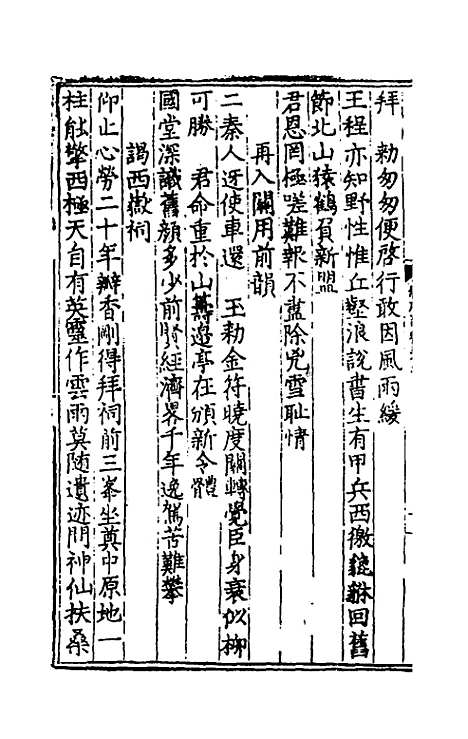 拜　勑匆匆便啓行敢因風雨緩
王程亦知野性惟丘壑浪說書生有甲兵西徼貔貅回舊
節北山猿鶴負新盟
君恩罔極嗟難報不盡除兇雪耻情
再入關用前韻
二秦人迓使車還　玉勑金符曉度關轉覺臣身衰似柳
可勝　君命重於山邊亭在頒新令體
國堂深識舊顏多少前賢經濟畧千年逸駕苦難攀
謁西嶽祠
仰止心勞二十年瓣香剛得拜祠前三峯坐奠中原地一
柱能擎西極天自有英靈作雲雨莫随遺迹問神仙扶桑